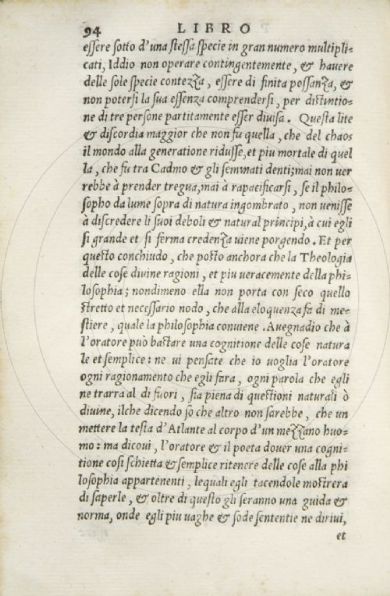 94 LIBRO
essere sotto d'una stessa specie in gran numero multipli-
cati, Iddio non operare contingentemente, & hauere
delle sole specie contezza, essere di finita possanza, &
non potersi la sua essenza comprendersi, per distintio-
ne di tre persone partitamente esser diuisa. Questa lite
& discordia maggior che non fu quella, che del chaos
il mondo alla generatione ridusse, et piu mortale di quel
la, che fu tra Cadmo & gli seminati denti; mai non uer
rebbe à prender tregua, mai à rapacificarsi, se il philo-
sopho da lume sopra di natura ingombrato, non uenisse
à discredere li suoi deboli & natural principi, à cui egli
si grande et si ferma credenza uiene porgendo. Et per
questo conchiudo, che posto anchora che la Theologia
delle cose diuine ragioni, et piu ueracemente della phi-
losophia; nondimeno ella non porta con seco quello
stretto et necessario nodo, che alla eloquenza fa di me-
stiere, quale la philosophia conuiene. Auegnadio che à
l'oratore può bastare una cognitione delle cose natura
le et semplice: ne ui pensate che io uoglia l'oratore
ogni ragionamento che egli fara, ogni parola che egli
ne trarra al di fuori, sia piena di questioni naturali ò
diuine, ilche dicendo so che altro non sarebbe, che un
mettere la testa d'Atlante al corpo d'un mezzano huo-
mo: ma dicoui, l'oratore & il poeta douer una cogni-
tione cosi schietta & semplice ritenere delle cose alla phi
losophia appartenenti, lequali egli tacendole mostrera
di saperle, & oltre di questo gli seranno una guida &
norma, onde egli piu uaghe & sode sententie ne diriui,
et